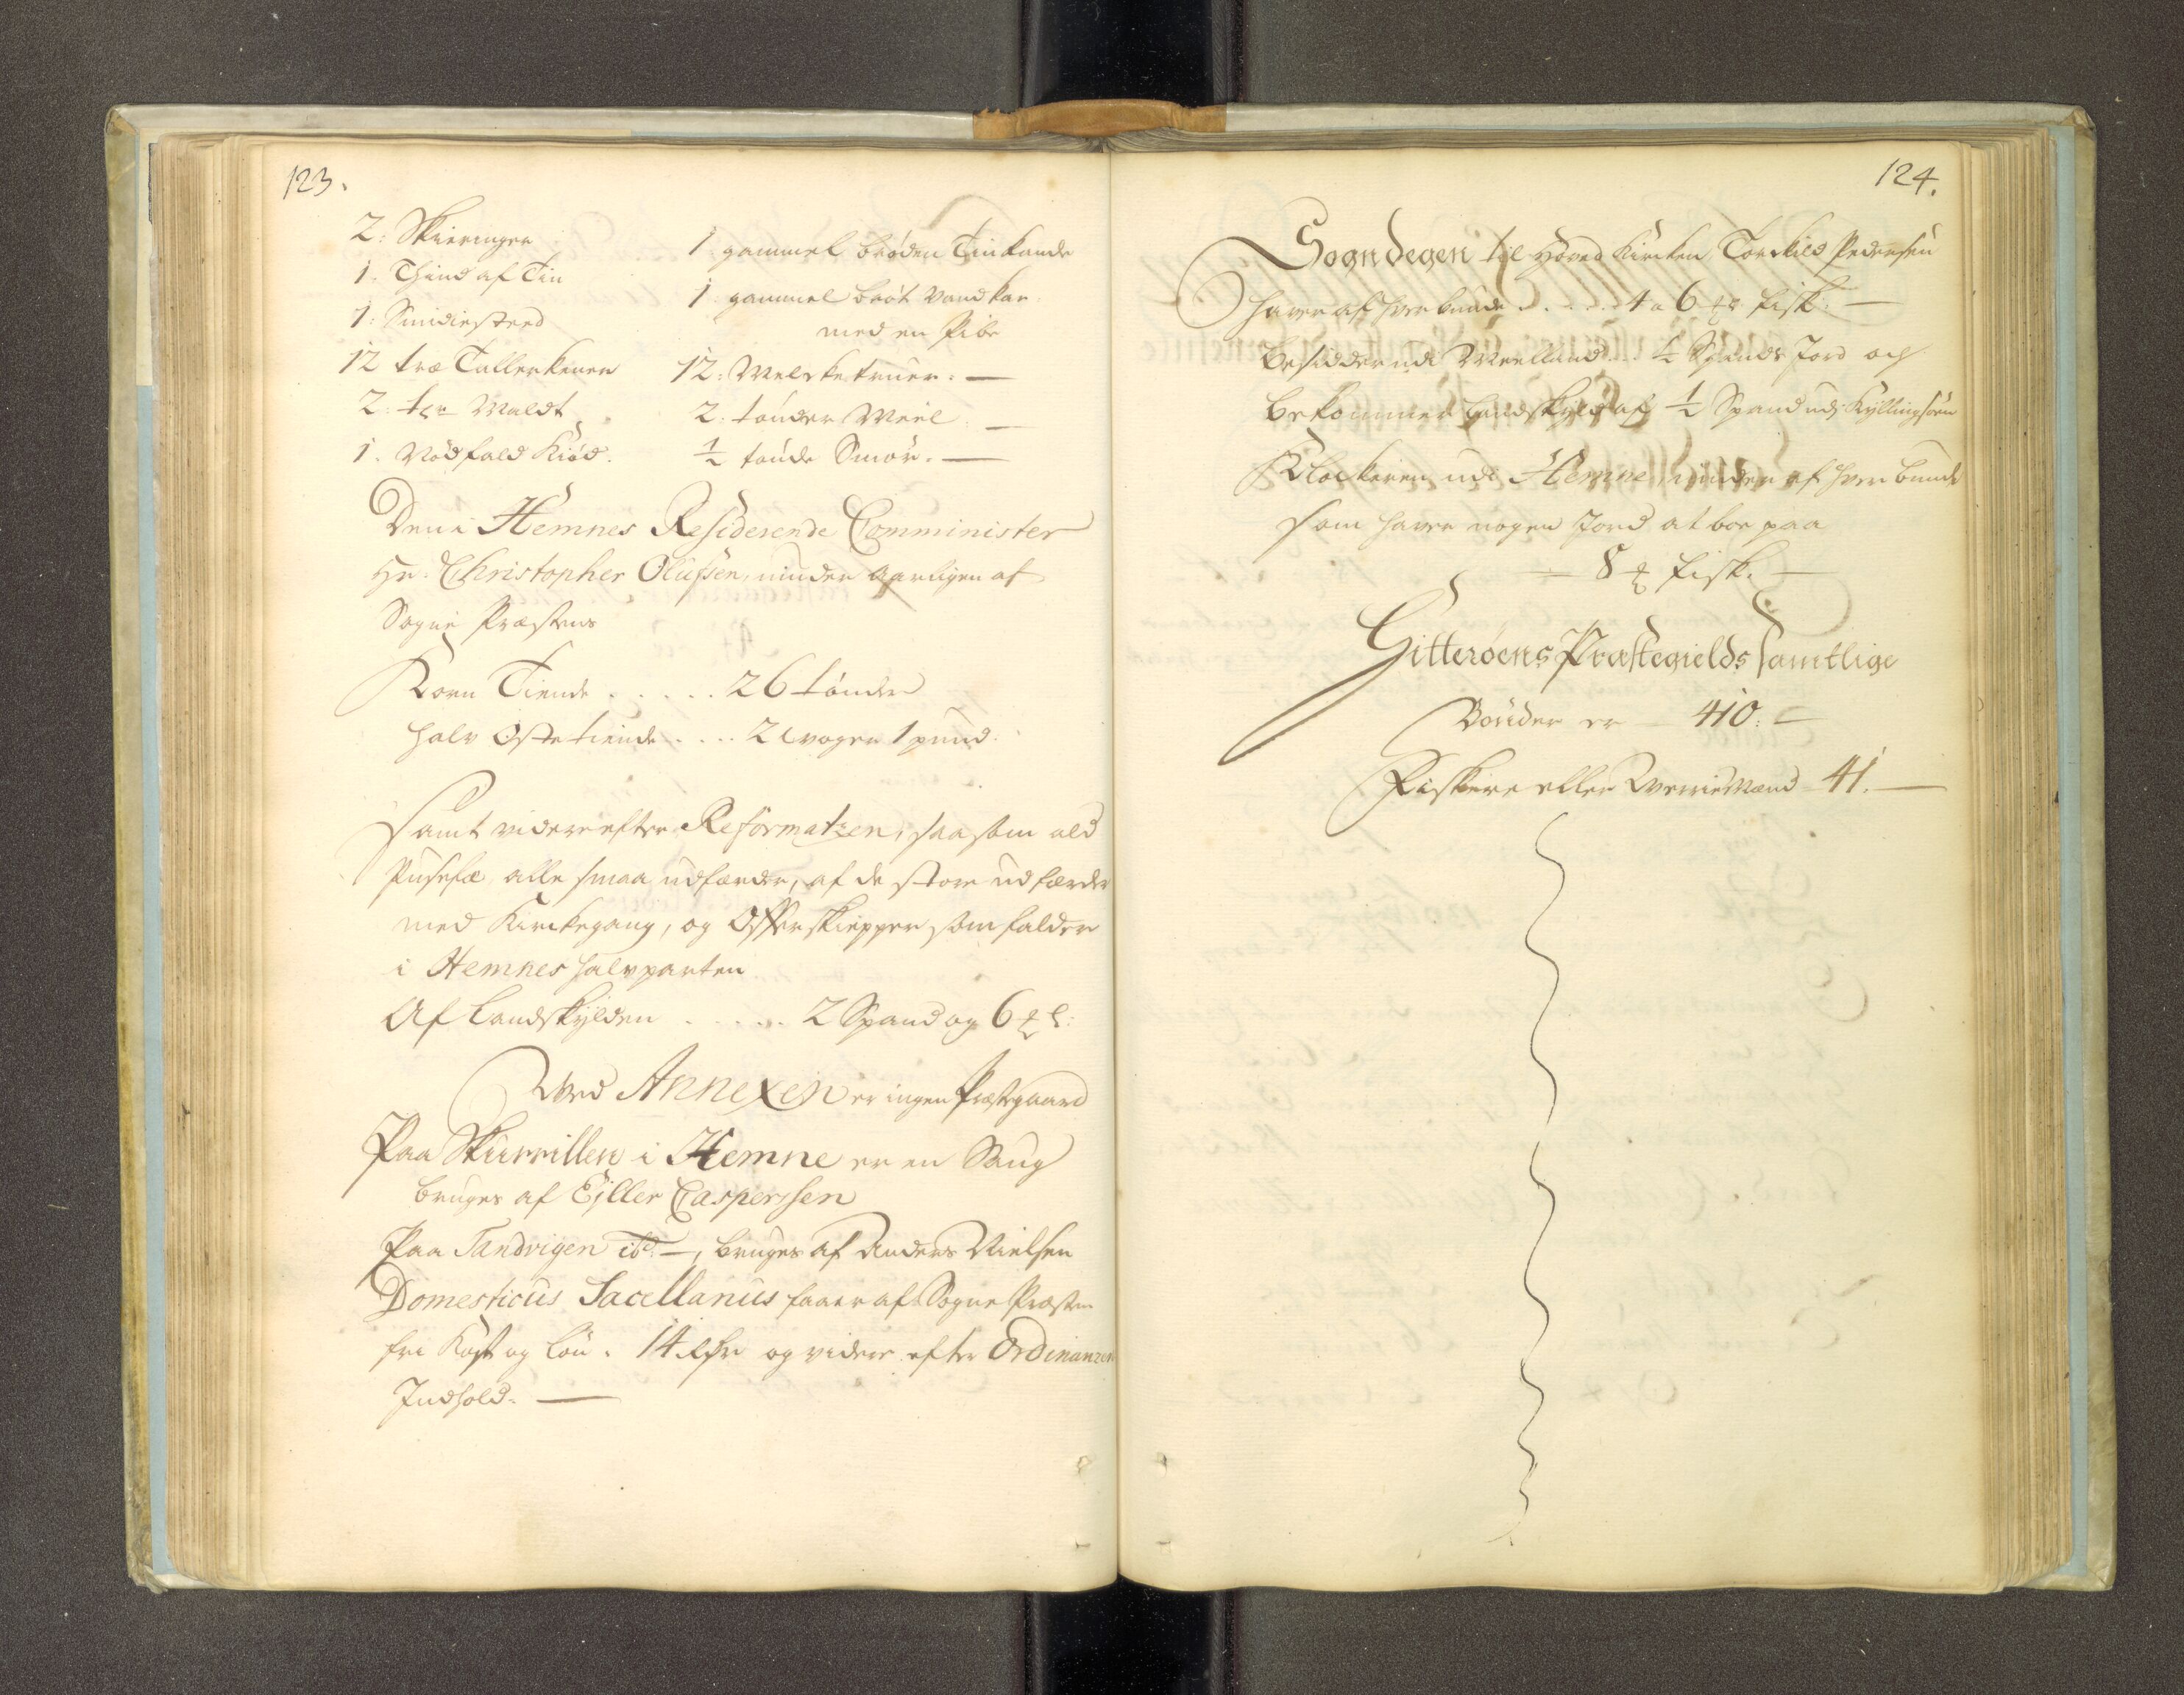 123.
2: Skieringer
1. Thind af Tin
1: Smidiested
12 træ Tallerkener
2: tdr Maldt
1. Nødfald Kiød.
1 gammel brøden Tinkande
1 gammel brøt Vandkar
med en Pibe
12: Melcketruer. —
2. tønder Meel. —
½ tønde Smør. —
Den i Hemnes Residerende Comminister
Hr: Christopher Olufsen, niuder aarligen af
Sogne Præstens
Korn Tiende . . . . . 26 tønder
halv Oste tiende . . . . 2 woger 1 pund.
Samt videre efter Reformatzen, saasom ald
alle smaa udfærder, af de store udfærder
med Kirkegang, og Offer skiepper som falder
i Hemnes halvparten
Af Landskylden . . . . . 2 Spand og 6
Wed Annexen er ingen Præstegaard
Paa Skurvillen i Hemne er en Saug
bruges af Ejller Caspersen
Paa Sandvigen ibd: —, bruges af Anders Nielsen
Domesticus Sacellanus faaer af Sogne Præsten
fri Kost og Løn. 14 Rdr og videre efter Ordinanzen
Indhold. —
124.
Sogndegen til Hoved Kircken Torckild Pedersen
haver af hver bunde . . . . 4 a 6 fisk. —
besidder udi Meelland . . . ½ Spands Jord och
bekommer Landskyld af ½ Spand udj Kyllingsøen
Klockeren udi Hemne, niuder af hver bunde
som haver nogen Jord at boe paa
— 8 fisk. —
Hitterøens Præstegields samtlige
Bønder er — 410. —
Fiskere eller Werremænd — 41. —